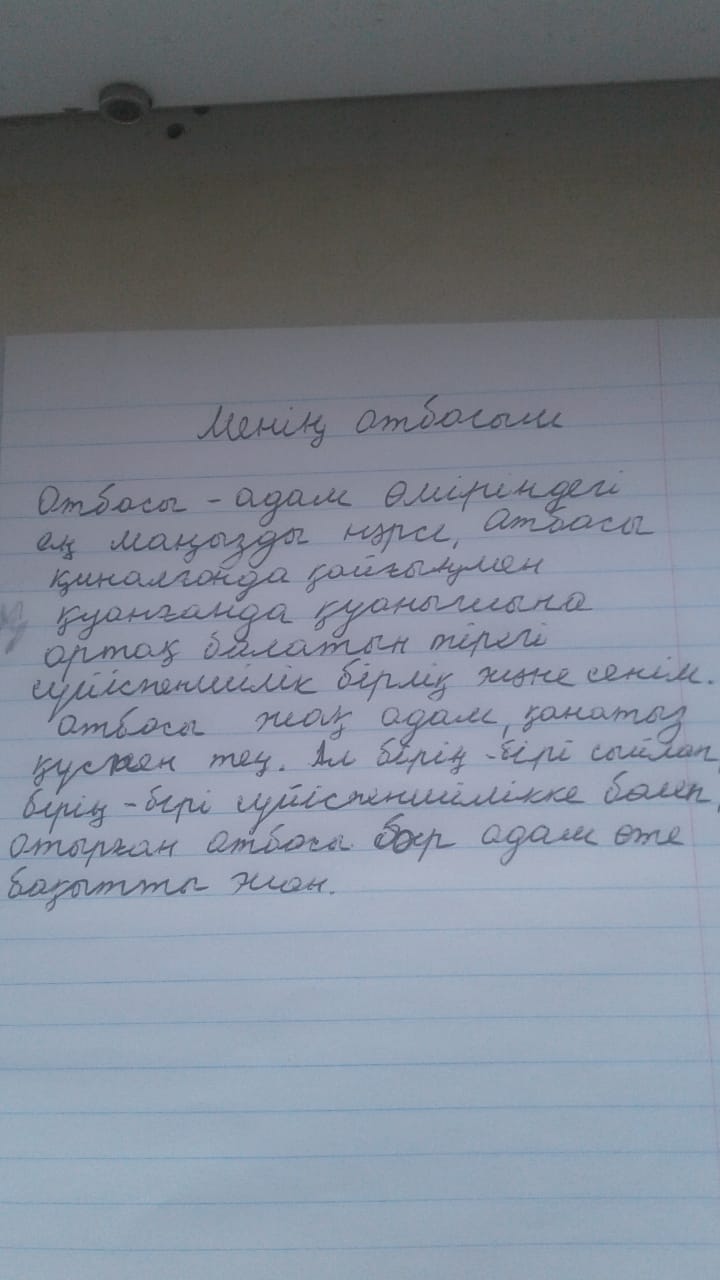 Менің отбасым
Отбасы - адам өміріндегі
ең маңызды нәрсе, Отбасы
қиналғанда қайғыңмен
қуанғанда қуанышына
ортақ балатын тірегі
сүйіспеншілік бірлік және сенім.
отбасы жақ адам, қанатыз
құспен тең. Ал бірің-бірі сыйлап,
бірің-бері сүйіспеншілікке бөлеп,
отырған отбосы бар адам өте
бақытты жан.